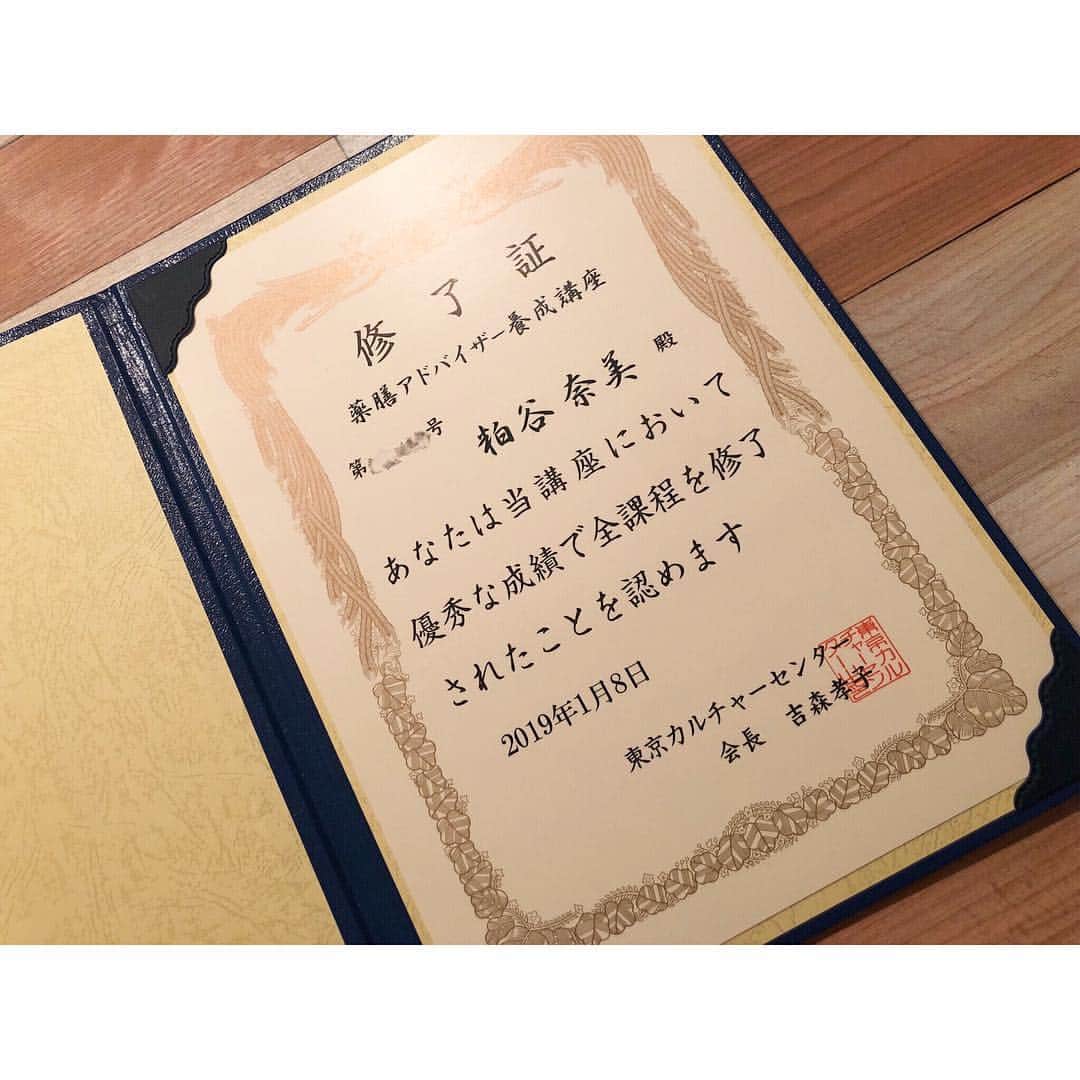 修了証
薬膳アドバイザー養成講座
第 号
粕谷 奈美 殿
あなたは当講座において
優秀な成績で全課程を修了
されたことを認めます
2019年1月8日
東京カルチャーセンター
会長 吉森孝子